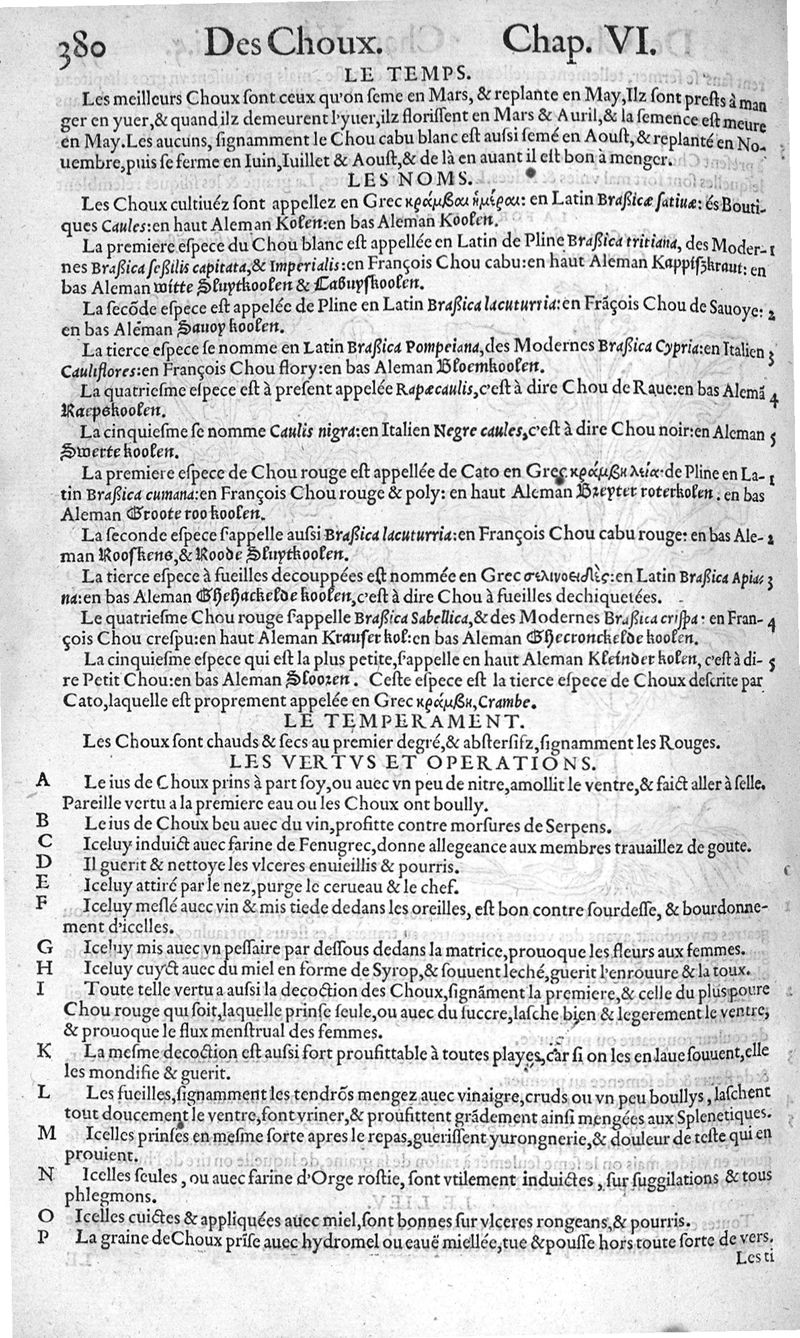 380 Des Choux. Chap. VI.
LE TEMPS.
Les meilleurs Choux ſont ceux qu'on ſeme en Mars, & replante en May, Ilz ſont preſts à man
ger en yuer, & quand ilz demeurent l'yuer, ilz floriſſent en Mars & Auril, & la ſemence eſt meure
en May. Les aucuns, ſignamment le Chou cabu blanc eſt auſsi ſemé en Aouſt, & replanté en No-
uembre, puis ſe ferme en Iuin, Iuillet & Aouſt, & de là en auant il eſt bon à menger.
LES NOMS.
Les Choux cultiuéz ſont appellez en Grec κράμβαι ἡμέραι: en Latin Braßicæ ſatiuæ: és Bouti-
ques Caules: en haut Aleman Kolen: en bas Aleman Koolen.
La premiere eſpece du Chou blanc eſt appellée en Latin de Pline Braßica tritiana, des Moder- 1
nes Braßica ſeßilis capitata, & Imperialis: en François Chou cabu: en haut Aleman Kappiſzkraut: en
bas Aleman witte Sluytkoolen & Cabuyſkoolen.
La ſecõde eſpece eſt appelée de Pline en Latin Braßica lacuturria: en Frãçois Chou de Sauoye: 2
en bas Aleman Savoy koolen.
La tierce eſpece ſe nomme en Latin Braßica Pompeiana, des Modernes Braßica Cypria: en Italien 3
Cauliflores: en François Chou flory: en bas Aleman Bloemkoolen.
La quatrieſme eſpece eſt à preſent appelée Rapæcaulis, c'eſt à dire Chou de Raue: en bas Alemã 4
Raepskoolen.
La cinquieſme ſe nomme Caulis nigra: en Italien Negre caules, c'eſt à dire Chou noir: en Aleman 5
Swerte koolen.
La premiere eſpece de Chou rouge eſt appellée de Cato en Grec κράμβη λεία: de Pline en La- 1
tin Braßica cumana: en François Chou rouge & poly: en haut Aleman Breyter roterkolen: en bas
Aleman Groote roo koolen.
La ſeconde eſpece ſ'appelle auſsi Braßica lacuturria: en François Chou cabu rouge: en bas Ale- 2
man Rooſkens, & Roode Sluytkoolen.
La tierce eſpece à fueilles decouppées eſt nommée en Grec σελινοειδὲς: en Latin Braßica Apia- 3
na: en bas Aleman Ghehackelde koolen, c'eſt à dire Chou à fueilles dechiquetées.
Le quatrieſme Chou rouge ſ'appelle Braßica Sabellica, & des Modernes Braßica criſpa: en Fran- 4
çois Chou creſpu: en haut Aleman Krauſer kol: en bas Aleman Ghecronckelde koolen.
La cinquieſme eſpece qui eſt la plus petite, ſ'appelle en haut Aleman Kleinder kolen, c'eſt à di- 5
re Petit Chou: en bas Aleman Slooren. Ceſte eſpece eſt la tierce eſpece de Choux deſcrite par
Cato, laquelle eſt proprement appelée en Grec κράμβη, Crambe.
LE TEMPERAMENT.
Les Choux ſont chauds & ſecs au premier degré, & abſterſifz, ſignamment les Rouges.
LES VERTVS ET OPERATIONS.
A Le ius de Choux prins à part ſoy, ou auec vn peu de nitre, amollit le ventre, & faict aller à ſelle.
Pareille vertu a la premiere eau ou les Choux ont boully.
B Le ius de Choux beu auec du vin, profitte contre morſures de Serpens.
C Iceluy induict auec farine de Fenugrec, donne allegeance aux membres trauaillez de goute.
D Il guerit & nettoye les vlceres enuieillis & pourris.
E Iceluy attiré par le nez, purge le cerueau & le chef.
F Iceluy meſlé auec vin & mis tiede dedans les oreilles, eſt bon contre ſourdeſſe, & bourdonne-
ment d'icelles.
G Iceluy mis auec vn peſſaire par deſſous dedans la matrice, prouoque les fleurs aux femmes.
H Iceluy cuyct auec du miel en forme de Syrop, & ſouuent leché, guerit l'enrouure & la toux.
I Toute telle vertu a auſsi la decoction des Choux, ſignãment la premiere, & celle du plus poure
Chou rouge qui ſoit, laquelle prinſe ſeule, ou auec du ſuccre, laſche bien & legerement le ventre,
& prouoque le flux menſtrual des femmes.
K La meſme decoction eſt auſsi fort proufittable à toutes playes, car ſi on les en laue ſouuent, elle
les mondifie & guerit.
L Les fueilles, ſignamment les tendrõs mengez auec vinaigre, cruds ou vn peu boullys, laſchent
tout doucement le ventre, font vriner, & proufittent grãdement ainſi mengées aux Splenetiques.
M Icelles prinſes en meſme ſorte apres le repas, gueriſſent yurongnerie, & douleur de teſte qui en
prouient.
N Icelles ſeules, ou auec farine d'Orge roſtie, ſont vtilement induictes, ſur ſuggilations & tous
phlegmons.
O Icelles cuictes & appliquées auec miel, ſont bonnes ſur vlceres rongeans, & pourris.
P La graine de Choux prĩſe auec hydromel ou eauë miellée, tue & pouſſe hors toute ſorte de vers.
Les ti